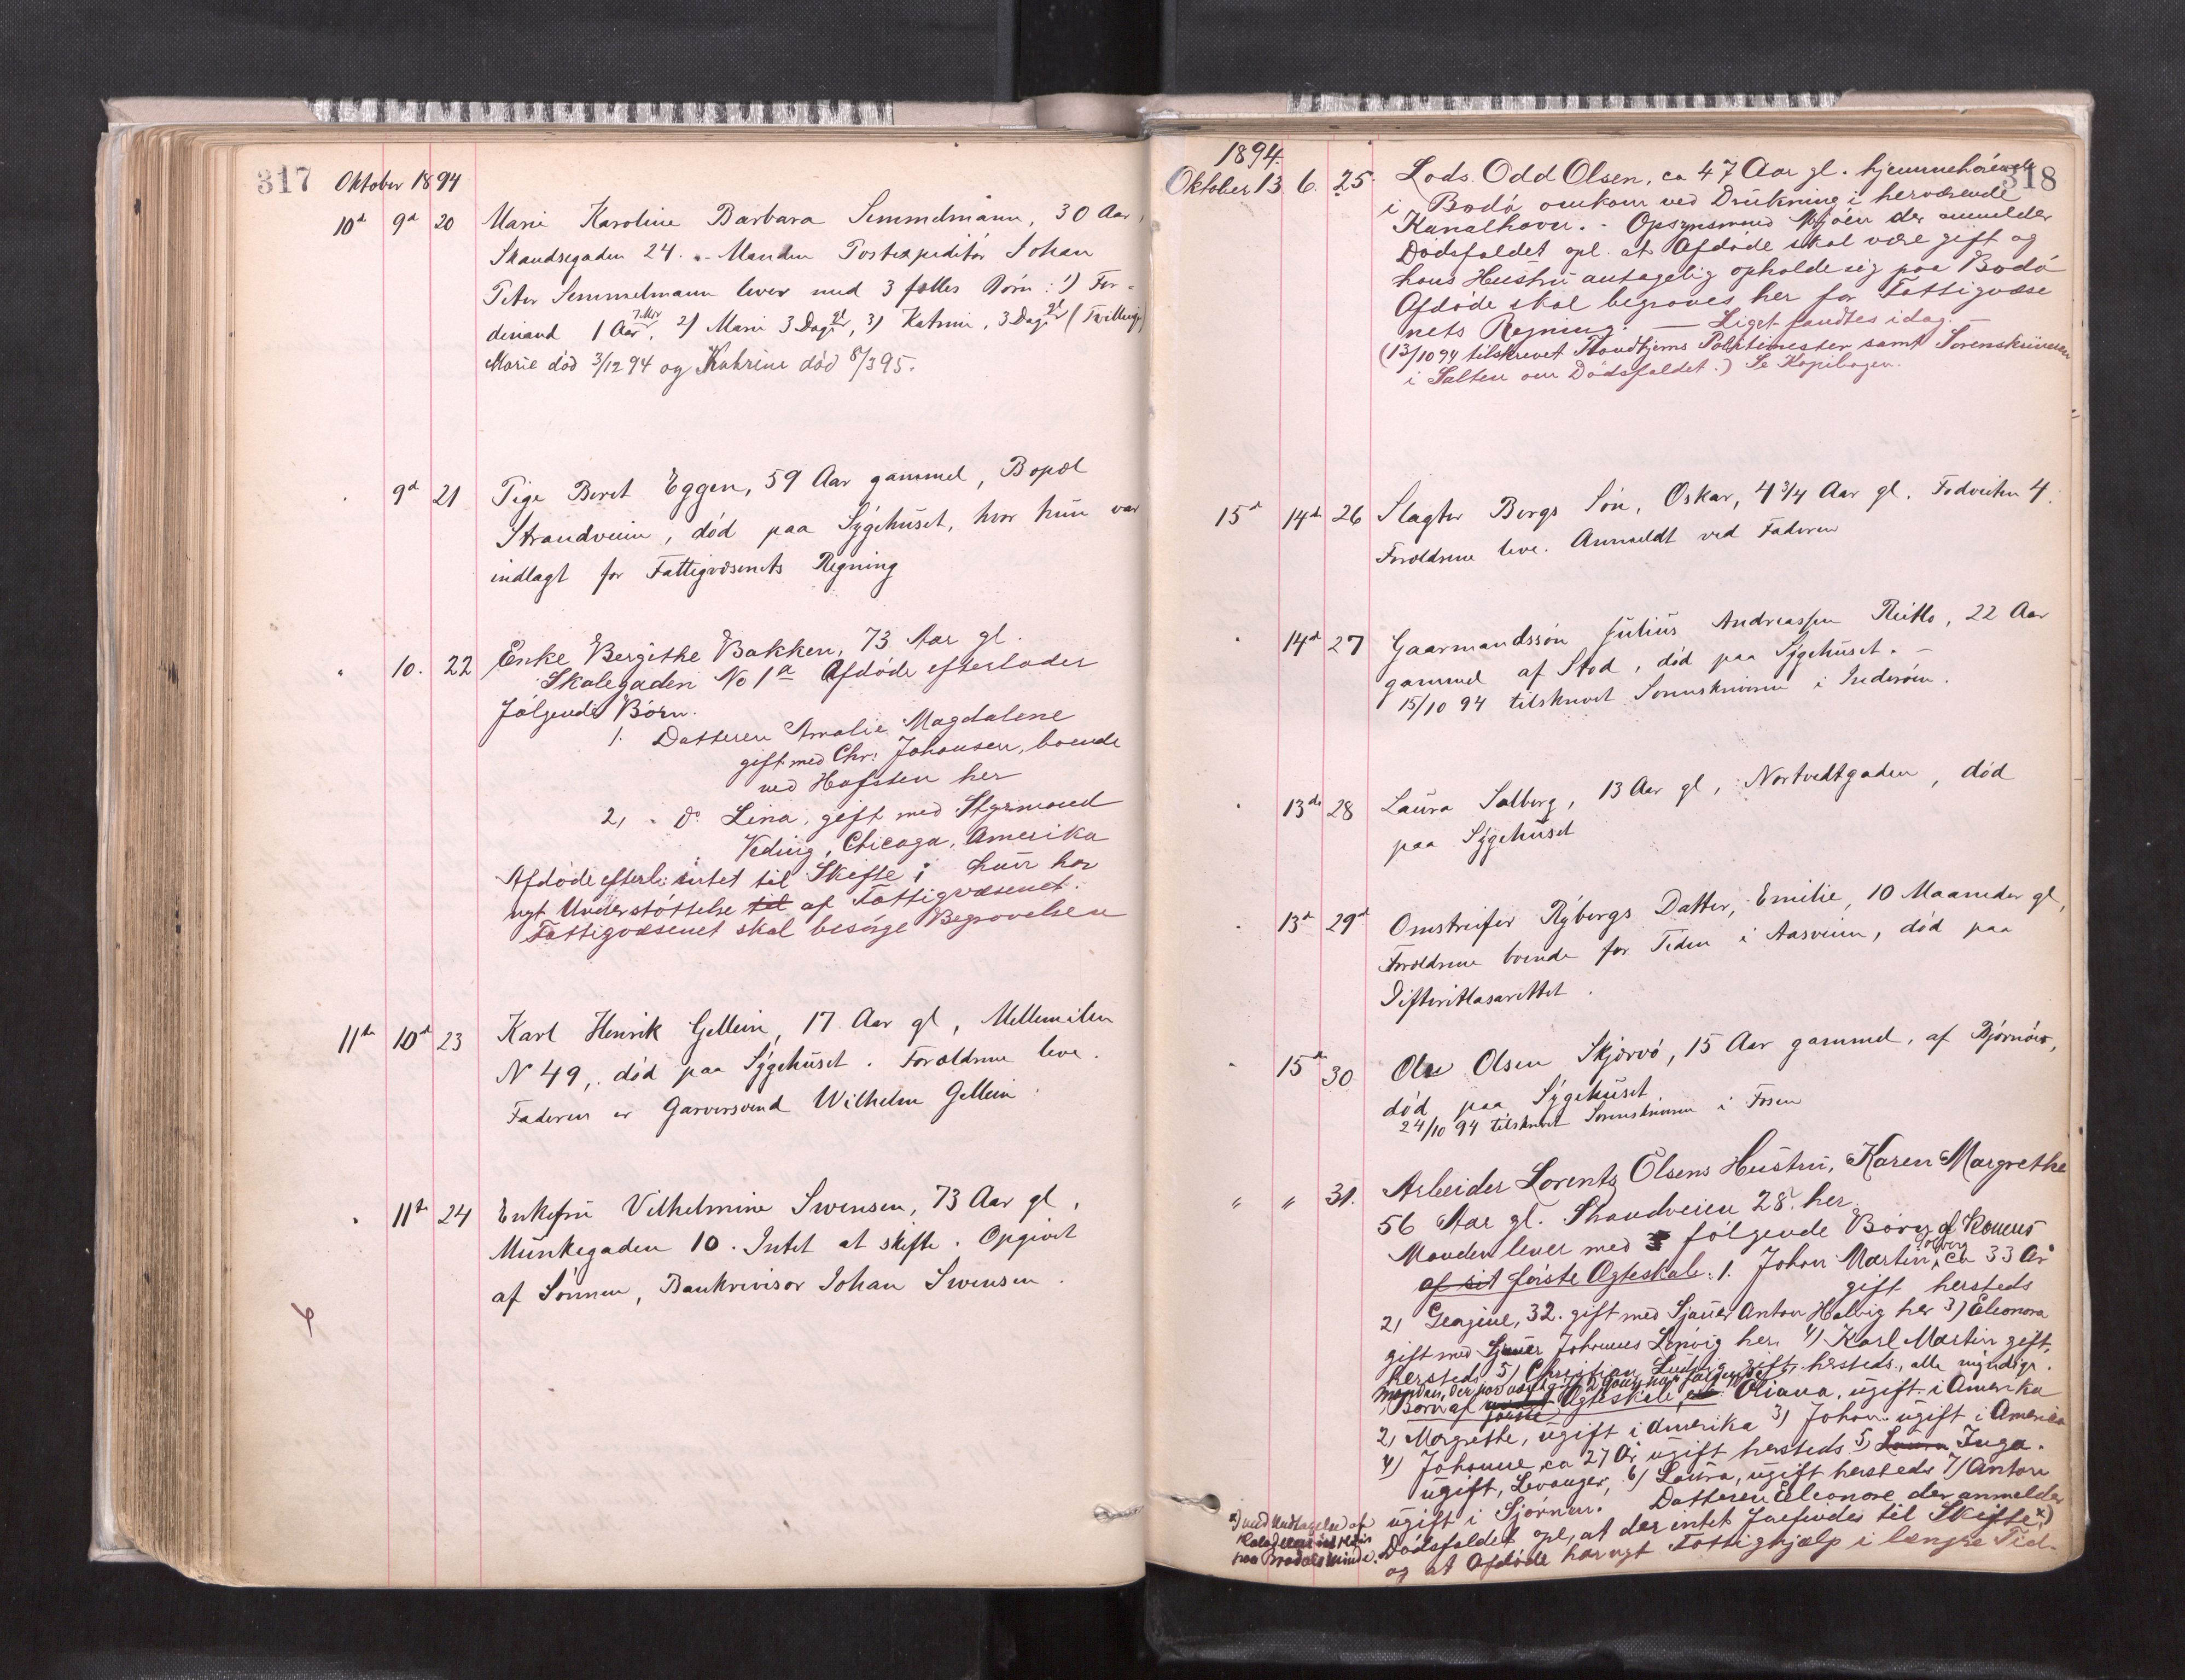 317 Oktober 1894
10d 9d 20 Marie Karoline Barbara Semmelmann, 30 Aar,
Skandsegaden 24. - Manden Postexpeditör Johan
Peter Semmelmann lever med 3 fælles Börn: 1) Fer-
dinand 1 Aar 7 Mdr, 2) Marie 3 Dage gl, 3) Katrine, 3 Dage gl (Tvillinger)
Marie död 3/12 94 og Kathrine död 8/3 95.
9d 21 Pige Beret Eggen, 59 Aar gammel, Bopæl
Strandveien, död paa Sygehuset, hvor hun var
indlagt for Fattigvæsenets Regning
" 10. 22 Enke Bergithe Bakken, 73 Aar gl.
Skolegaden No 1a Afdöde efterlader
fölgende Börn.
1. Datteren Amalie Magdalene
gift med Chr. Johansen, boende
ved Hafsten her
2, " Do Lina, gift med Styrmand
Veding, Chicago, Amerika
Afdöde efterl: intet til Skifte; hun har
nyt Understöttelse til af Fattigvæsenet.
Fattigvæsenet skal besörge Begravelsen
11te 10d 23 Karl Henrik Gellein, 17 Aar gl, Mellemilen
N 49, död paa Sygehuset. Forældrene leve.
Faderen er Garversvend Wilhelm Gellein
" 11te 24 Enkefru Vilhelmine Svensen, 73 Aar gl,
Munkegaden 10. Intet at skifte. Opgivet
af Sönnen, Bankrevisor Johan Svensen.
318
1894.
Oktober 13 6. 25. Lods Odd Olsen, ca 47 Aar gl. hjemmehörende
i Bodö omkom ved Drukning i herværende
Kanalhavn. - Opsynsmand Mjöen der anmelder
Dödsfaldet opl. at Afdöde skal være gift og
hans Hustru antagelig opholde sig paa Bodö
Afdöde skal begraves her for Fattigvæse
nets Regning. — Liget fandtes idag. -
(13/10 94 tilskrevet Trondhjems Politimester samt Sorenskriveren
i Salten om Dödsfaldet.) Se Kopibogen.
15d 14d 26 Slagter Bergs Sön, Oskar, 4 3/4 Aar gl. Fodveiten 4.
Forældrene leve. Anmeldt ved Faderen
" 14d 27 Gaarmandssön Julius Andreassen 22 Aar
gammel af Stod, död paa Sygehuset. -
15/10 94 tilskrevet Sorenskriveren i Inderöen.
" 13de 28 Laura Salberg, 13 Aar gl, Nortvedtgaden, död
paa Sygehuset
" 13d 29d Omstreifer Rybergs Datter, Emilie, 10 Maaneder gl,
Forældrene boende for Tiden i Aasveien, död paa
Difteritlasarettet.
" 15de 30 Ole Olsen Skjervö, 15 Aar gammel, af Björnör,
död paa Sygehuset
24/10 94 tilskrevet Sorenskriveren i Fosen
" " 31. Arbeider Lorents Olsens Hustru, Karen Margrethe
56 Aar gl. Strandveien 28. her
Manden lever med 5 fölgende Börn af Konens
af sit förste Ægteskab: 1. Johan Martin ca 33 År
gift hersteds
2) Georgine, 32. gift med Sjauer Anton Helvig her 3) Eleonora
gift med Sjauer Johannes Lenvig her. 4) Karl Martin gift,
hersteds 5) Christian Ludvig gift hersteds, alle myndige.
Manden, der har været gift 2 Gange har fölgende
Börn af förste Ægteskab, Oliana, ugift i Amerika
2) Margrethe, ugift i Amerika 3) Johan ugift i Amerika
4) Johanne, ca 27 År ugift hersteds 5) Laura Inga.
ugift, Levanger, 6) Laura, ugift hersteds 7) Anton
ugift i Sjörnen. Datteren Eleonore der anmelder
Dödsfaldet opl, at der intet forefindes til Skifte x)
og at Afdöde har nyt Fattighjælp i længre Tid.
x) med Undtagelse af
paa Brodals minde.